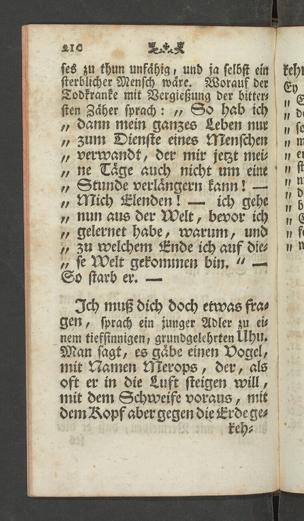 210
ses zu thun unfähig, und ja selbst ein
sterblicher Mensch wäre. Worauf der
Todkranke mit Vergießung der bitter-
sten Zäher sprach: „ So hab ich
„ dann mein ganzes Leben nur
„ zum Dienste eines Menschen
„ verwandt, der mir jetzt mei-
„ ne Täge auch nicht um eine
„ Stunde verlängern kann! —
„ Mich Elenden! — ich gehe
„ nun aus der Welt, bevor ich
„ gelernet habe, warum, und
„ zu welchem Ende ich auf die-
„ se Welt gekommen bin. “ —
So starb er. —
Ich muß dich doch etwas fra-
gen, sprach ein junger Adler zu ei-
nem tiefsinnigen, grundgelehrten Uhu.
Man sagt, es gäbe einen Vogel,
mit Namen Merops, der, als
oft er in die Luft steigen will,
mit dem Schweife voraus, mit
dem Kopf aber gegen die Erde ge-
keh-